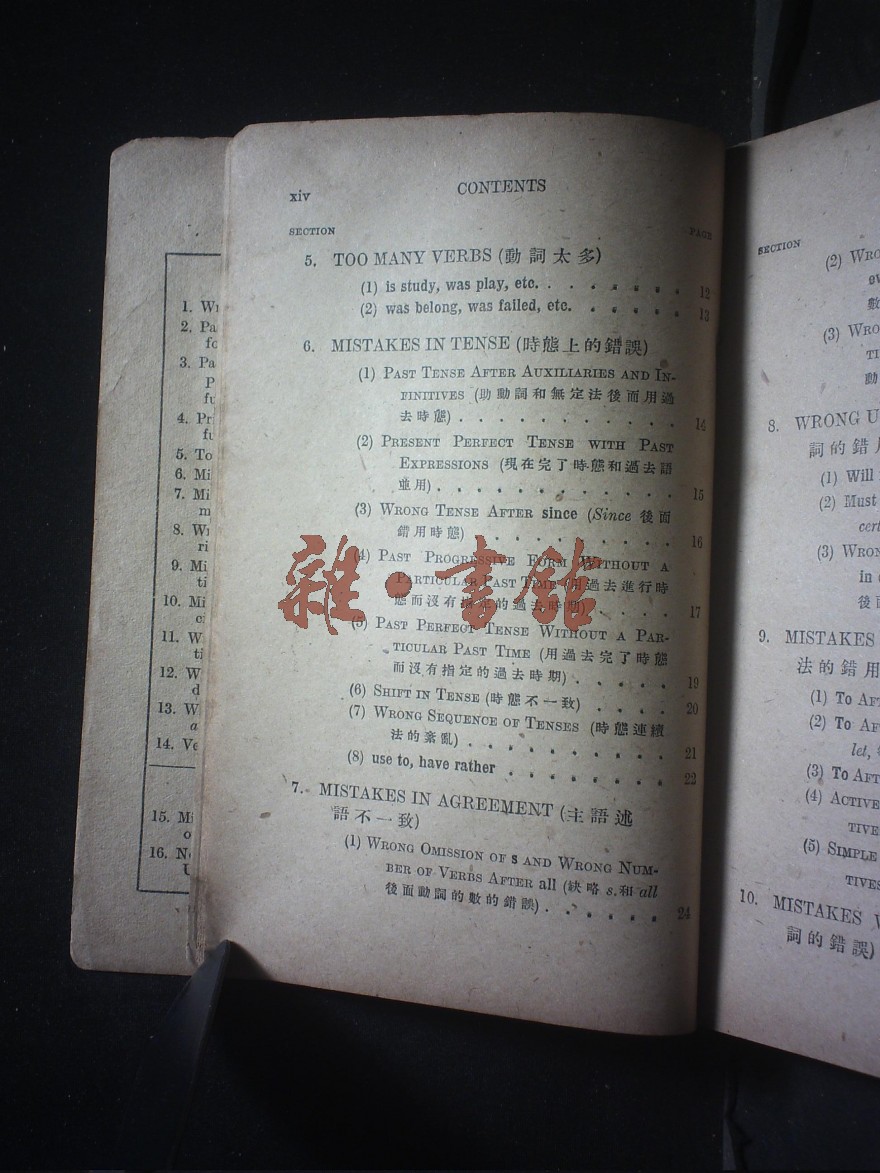 xiv
CONTENTS
SECTION
PAGE
5. TOO MANY VERBS (動詞太多)
(1) is study, was play, etc. . . . . . . . 12
(2) was belong, was failed, etc. . . . . . 13
6. MISTAKES IN TENSE (時態上的錯誤)
(1) PAST TENSE AFTER AUXILIARIES AND IN-
FINITIVES (助動詞和無定法後而用過
去時態) . . . . . . . . . . . 14
(2) PRESENT PERFECT TENSE WITH PAST
EXPRESSIONS (現在完了時態和過去語
並用) . . . . . . . . . . . . 15
(3) WRONG TENSE AFTER since (Since 後面
錯用時態) . . . . . . . . . . 16
(4) PAST PROGRESSIVE FORM WITHOUT A
PARTICULAR PAST TIME (用過去進行時
態而沒有指定的過去時期) . . . . 17
(5) PAST PERFECT TENSE WITHOUT A PAR-
TICULAR PAST TIME (用過去完了時態
而沒有指定的過去時期) . . . . . . 19
(6) SHIFT IN TENSE (時態不一致) . . . . 20
(7) WRONG SEQUENCE OF TENSES (時態連續
法的紊亂) . . . . . . . . . . 21
(8) use to, have rather . . . . . . . . 22
7. MISTAKES IN AGREEMENT (主語述
語不一致)
(1) WRONG OMISSION OF s AND WRONG NUM-
BER OF VERBS AFTER all (缺略 s. 和 all
後面動詞的數的錯誤) . . . . . . 24
雜·書館
1. W
2. Pa
fo
3. Pa
P
fu
4. Pr
fu
5. To
6. Mi
7. Mi
m
8. W
ri
9. Mi
ti
10. Mi
ci
11. W
ti
12. W
d
13. W
a
14. Ve
15. Mi
o
16. No
U
SECTION
(2) WRO
數
(3) WRO
TI
動
8. WRONG U
詞的錯
(1) Will
(2) Must
cert
(3) WRON
in
後面
9. MISTAKES
法的錯用
(1) To AFT
(2) To AF
let,
(3) To AFT
(4) ACTIVE
TIVE
(5) SIMPLE
TIVES
10. MISTAKES
詞的錯誤)